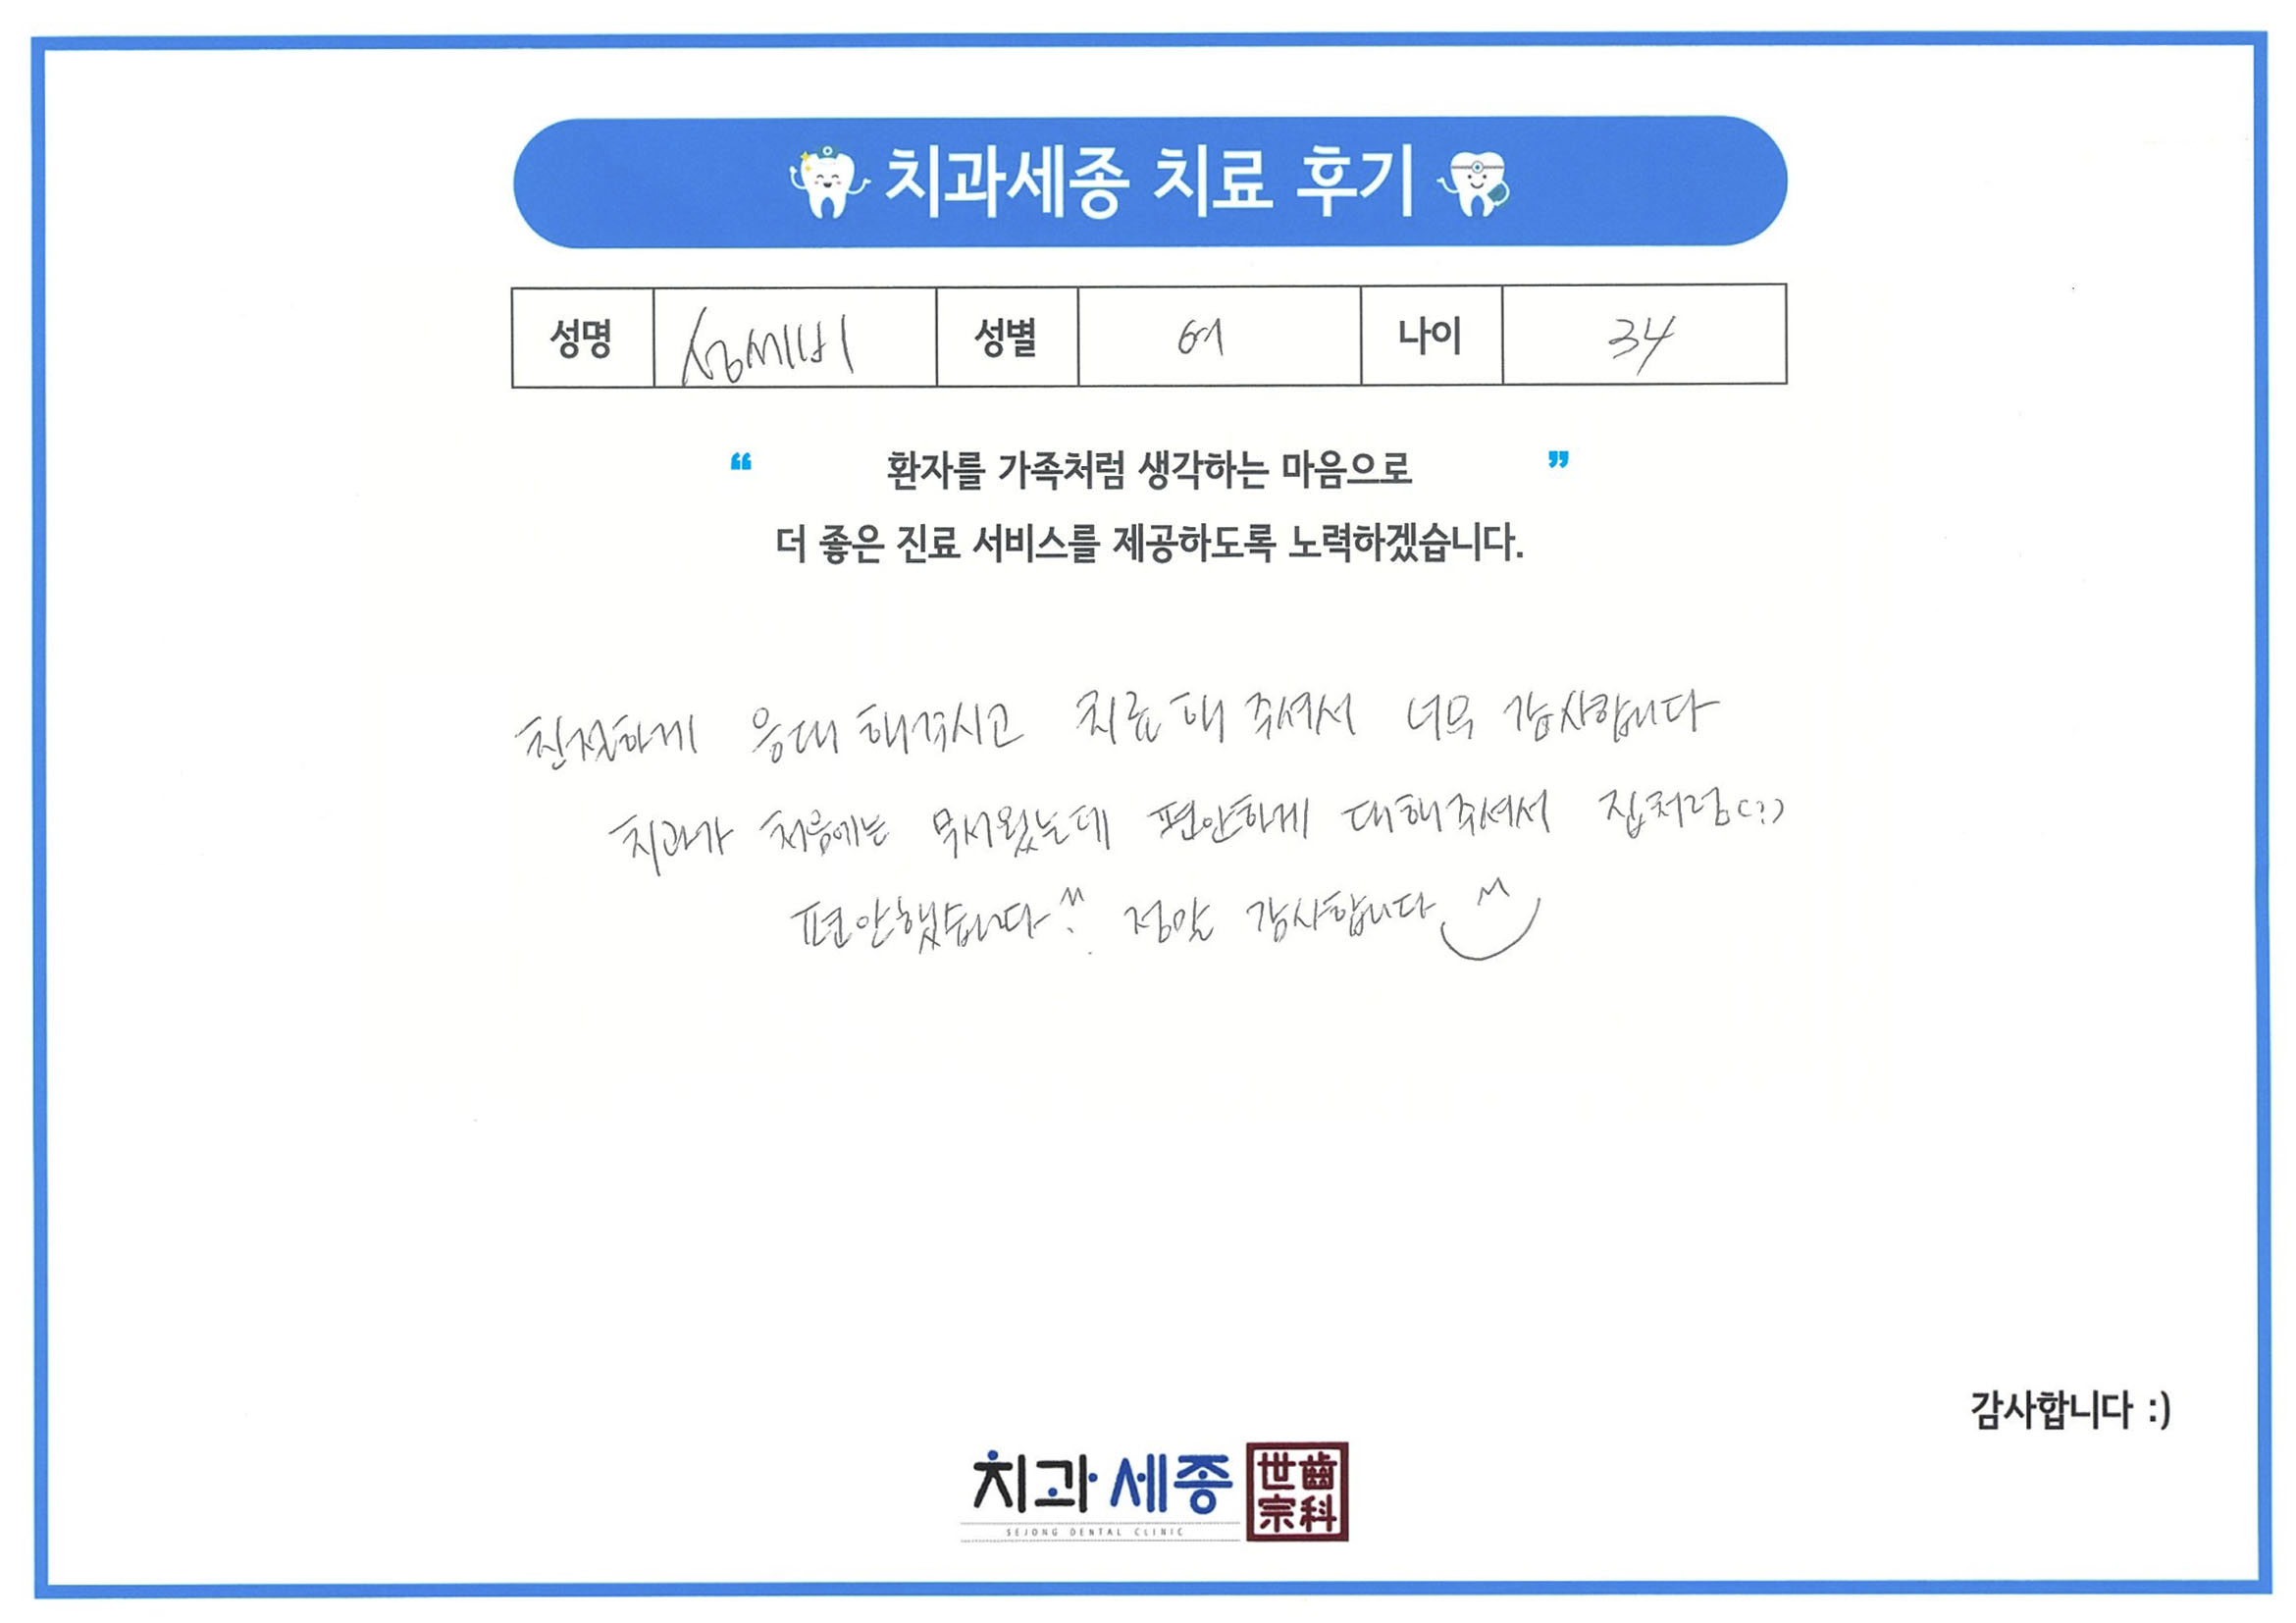 치과세종 치료 후기
성명 성별 여 나이 34
“ 환자를 가족처럼 생각하는 마음으로 ”
더 좋은 진료 서비스를 제공하도록 노력하겠습니다.
친절하게 응대 해주시고 치료 해 주셔서 너무 감사합니다
치과가 처음에는 무서웠는데 편안하게 대해주셔서 집처럼(?)
편안했습니다^^ 정말 감사합니다
감사합니다 :)
치과세종 世齒
宗科
SEJONG DENTAL CLINIC